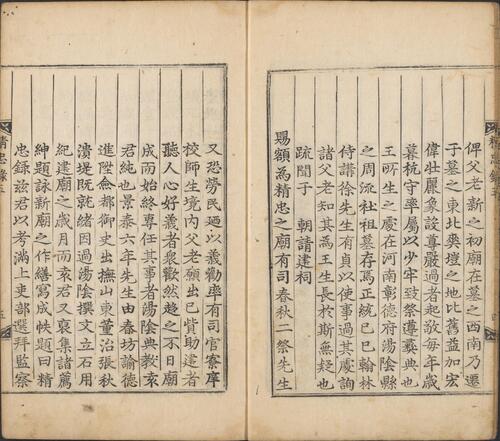 俾父老新之初廟在墓之西南乃遷
于墓之東北爽塏之地比舊益加宏
偉壯麗象設尊嚴過者起敬每年歲
暮杭守率屬以少牢致祭遵彛典也
王所生之處在河南彰德府湯陰縣
之周流社祖墓存焉正統己巳翰林
侍講徐先生有貞以使事過其處詢
諸父老知其爲王生長於斯無疑也
疏聞于　朝請建祠
賜額爲精忠之廟有司春秋二祭先生
又恐勞民廼以義勸率有司官寮庠
校師生境內父老願出己貲助建者
聽人心好義者衆歡然趨之不日廟
成而始終專任其事者湯陰典教袁
君純也景泰六年先生由春坊諭德
進陞僉都御史出撫山東董治張秋
潰堤既就緒因過湯陰撰文立石用
紀建廟之歲月而袁君又裒集諸薦
紳題詠新廟之作繕寫成帙題曰精
忠錄茲君以考滿上吏部選拜監察
精忠錄
五